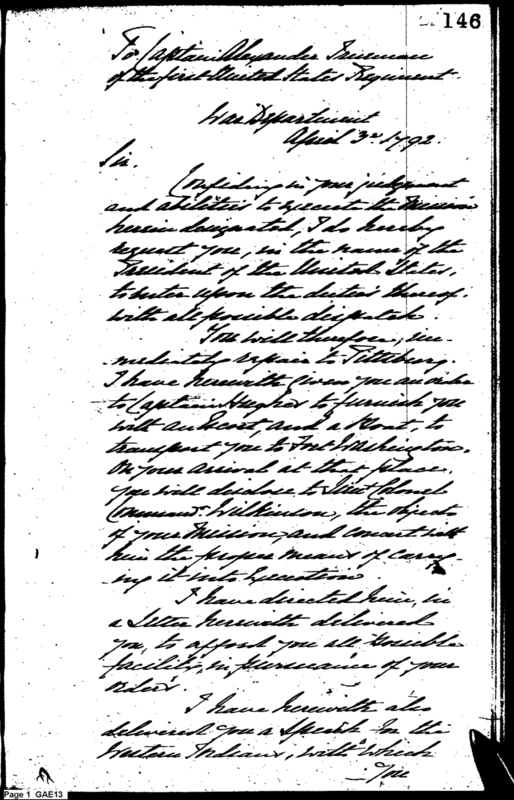 146
To Captain Alexander Trueman
of the first United States Regiment.
War Department
April 3rd 1792.
Sir.
Confiding in your judgement
and abilities to execute the Mission
herein designated, I do hereby
request you, in the name of the
President of the United States,
to enter upon the duties thereof.
with all possible dispatch.
You will therefore, im-
-mediately repair to Pittsburg.
I have herewith given you an order
to Captain Hughes to furnish you
with an Escort, and a Boat, to
transport you to Fort Washington.
On your arrival at that place,
you will disclose to Lieut Colonel
Command. Wilkinson, the objects
of your Mission, and concert with
him the proper means of carry-
ing it into Execution.
I have directed him, in
a Letter herewith delivered
you, to afford you all possible
facility, in pursuance of your
orders.
I have herewith also
delivered you a Speech to the
Western Indians, with which
-You
Page 1 GAE13